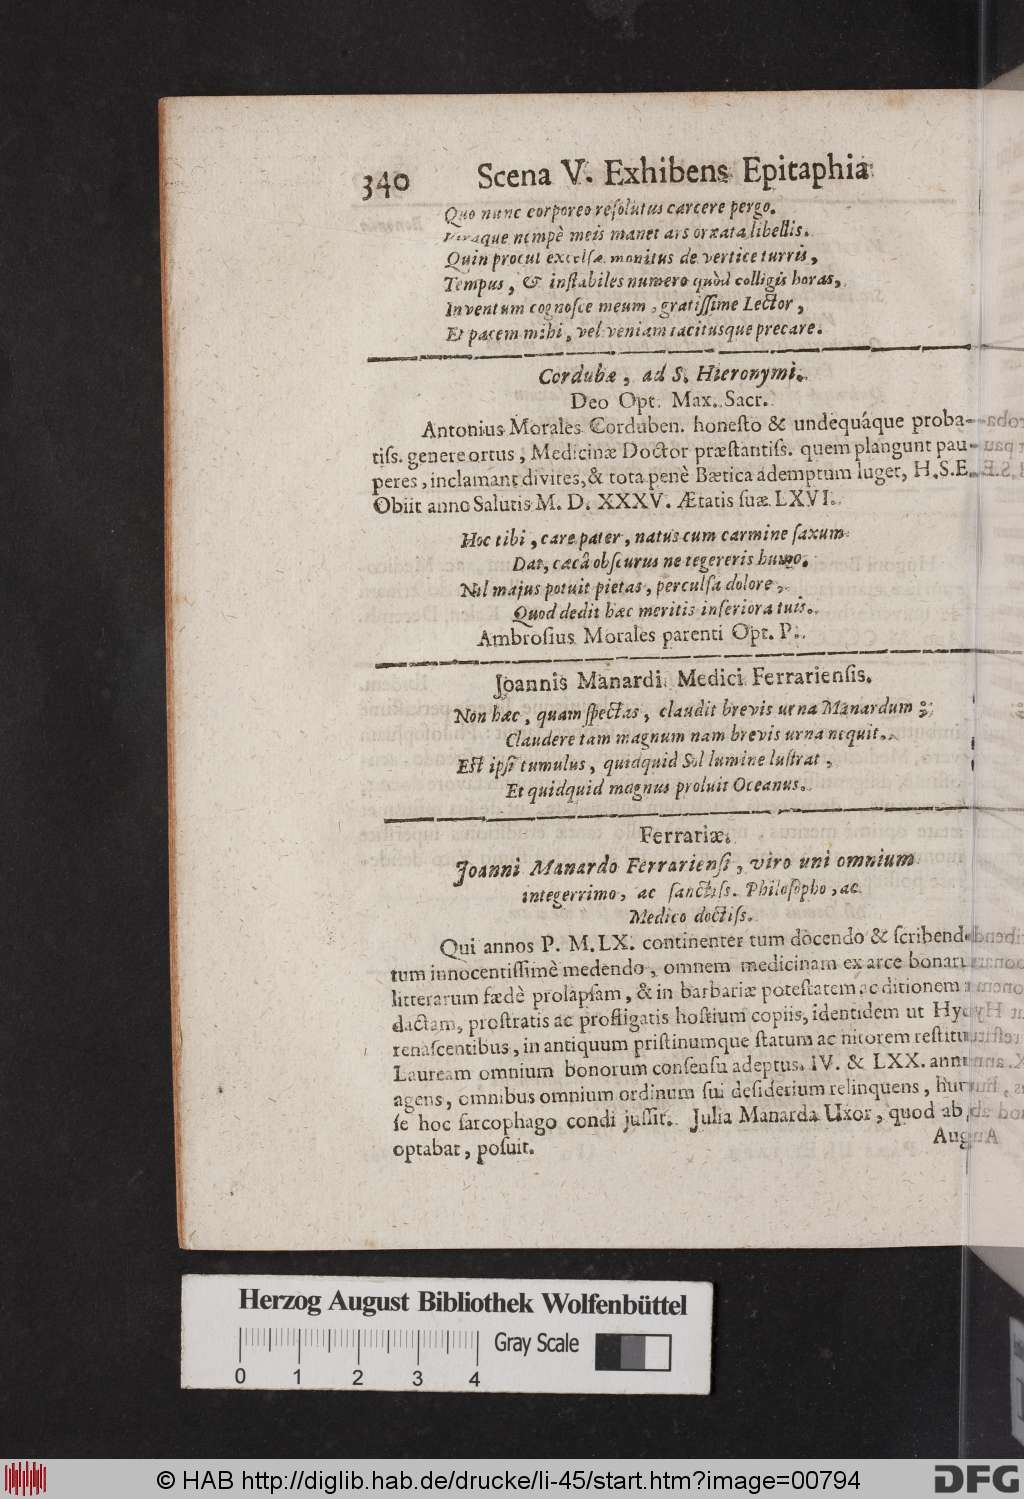 340 Scena V. Exhibens Epitaphia
Quo nunc corporeo reſolutus carcere pergo.
nempè meis manet ars ornata libellis.
Quin procul excelſæ monitus de vertice turris,
Tempus, & inſtabiles numero quòd colligis horas,
Inventum cognoſce meum, gratiſſime Lector,
Et pacem mihi, vel veniam tacitusque precare.
Cordubæ, ad S. Hieronymi.
Deo Opt. Max. Sacr.
Antonius Morales Corduben. honeſto & undequáque proba-
tiſſ. genere ortus, Medicinæ Doctor præſtantiſſ. quem plangunt pau-
peres, inclamant divites, & tota penè Bætica ademptum luget, H.S.E.
Obiit anno Salutis M. D. XXXV. Ætatis ſuæ LXVI.
Hoc tibi, care pater, natus cum carmine ſaxum
Dat, cæcâ obſcurus ne tegereris humo.
Nil majus potuit pietas, perculſa dolore,
Quod dedit hæc meritis inferiora tuis.
Ambroſius Morales parenti Opt. P.
Joannis Manardi Medici Ferrarienſis.
Non hæc, quam ſpectas, claudit brevis urna Manardum;
Claudere tam magnum nam brevis urna nequit.
Eſt ipſi tumulus, quidquid Sol lumine luſtrat,
Et quidquid magnus proluit Oceanus.
Ferrariæ.
Joanni Manardo Ferrarienſi, viro uni omnium
integerrimo, ac ſanctiſſ. Philoſopho, ac
Medico doctiſſ.
Qui annos P. M. LX. continenter tum docendo & ſcribend
tum innocentiſſimè medendo, omnem medicinam ex arce bonar
litterarum fædè prolapſam, & in barbariæ poteſtatem ac ditionem
dactam, proſtratis ac profligatis hoſtium copiis, identidem ut Hyd
renaſcentibus, in antiquum priſtinumque ſtatum ac nitorem reſtitu
Lauream omnium bonorum conſenſu adeptus. IV. & LXX. ann
agens, omnibus omnium ordinum ſui deſiderium relinquens,
ſe hoc ſarcophago condi juſſit. Julia Manarda Uxor, quod ab
optabat, poſuit.
Augu
Herzog August Bibliothek Wolfenbüttel
Gray Scale
0 1 2 3 4
© HAB http://diglib.hab.de/drucke/li-45/start.htm?image=00794
DFG